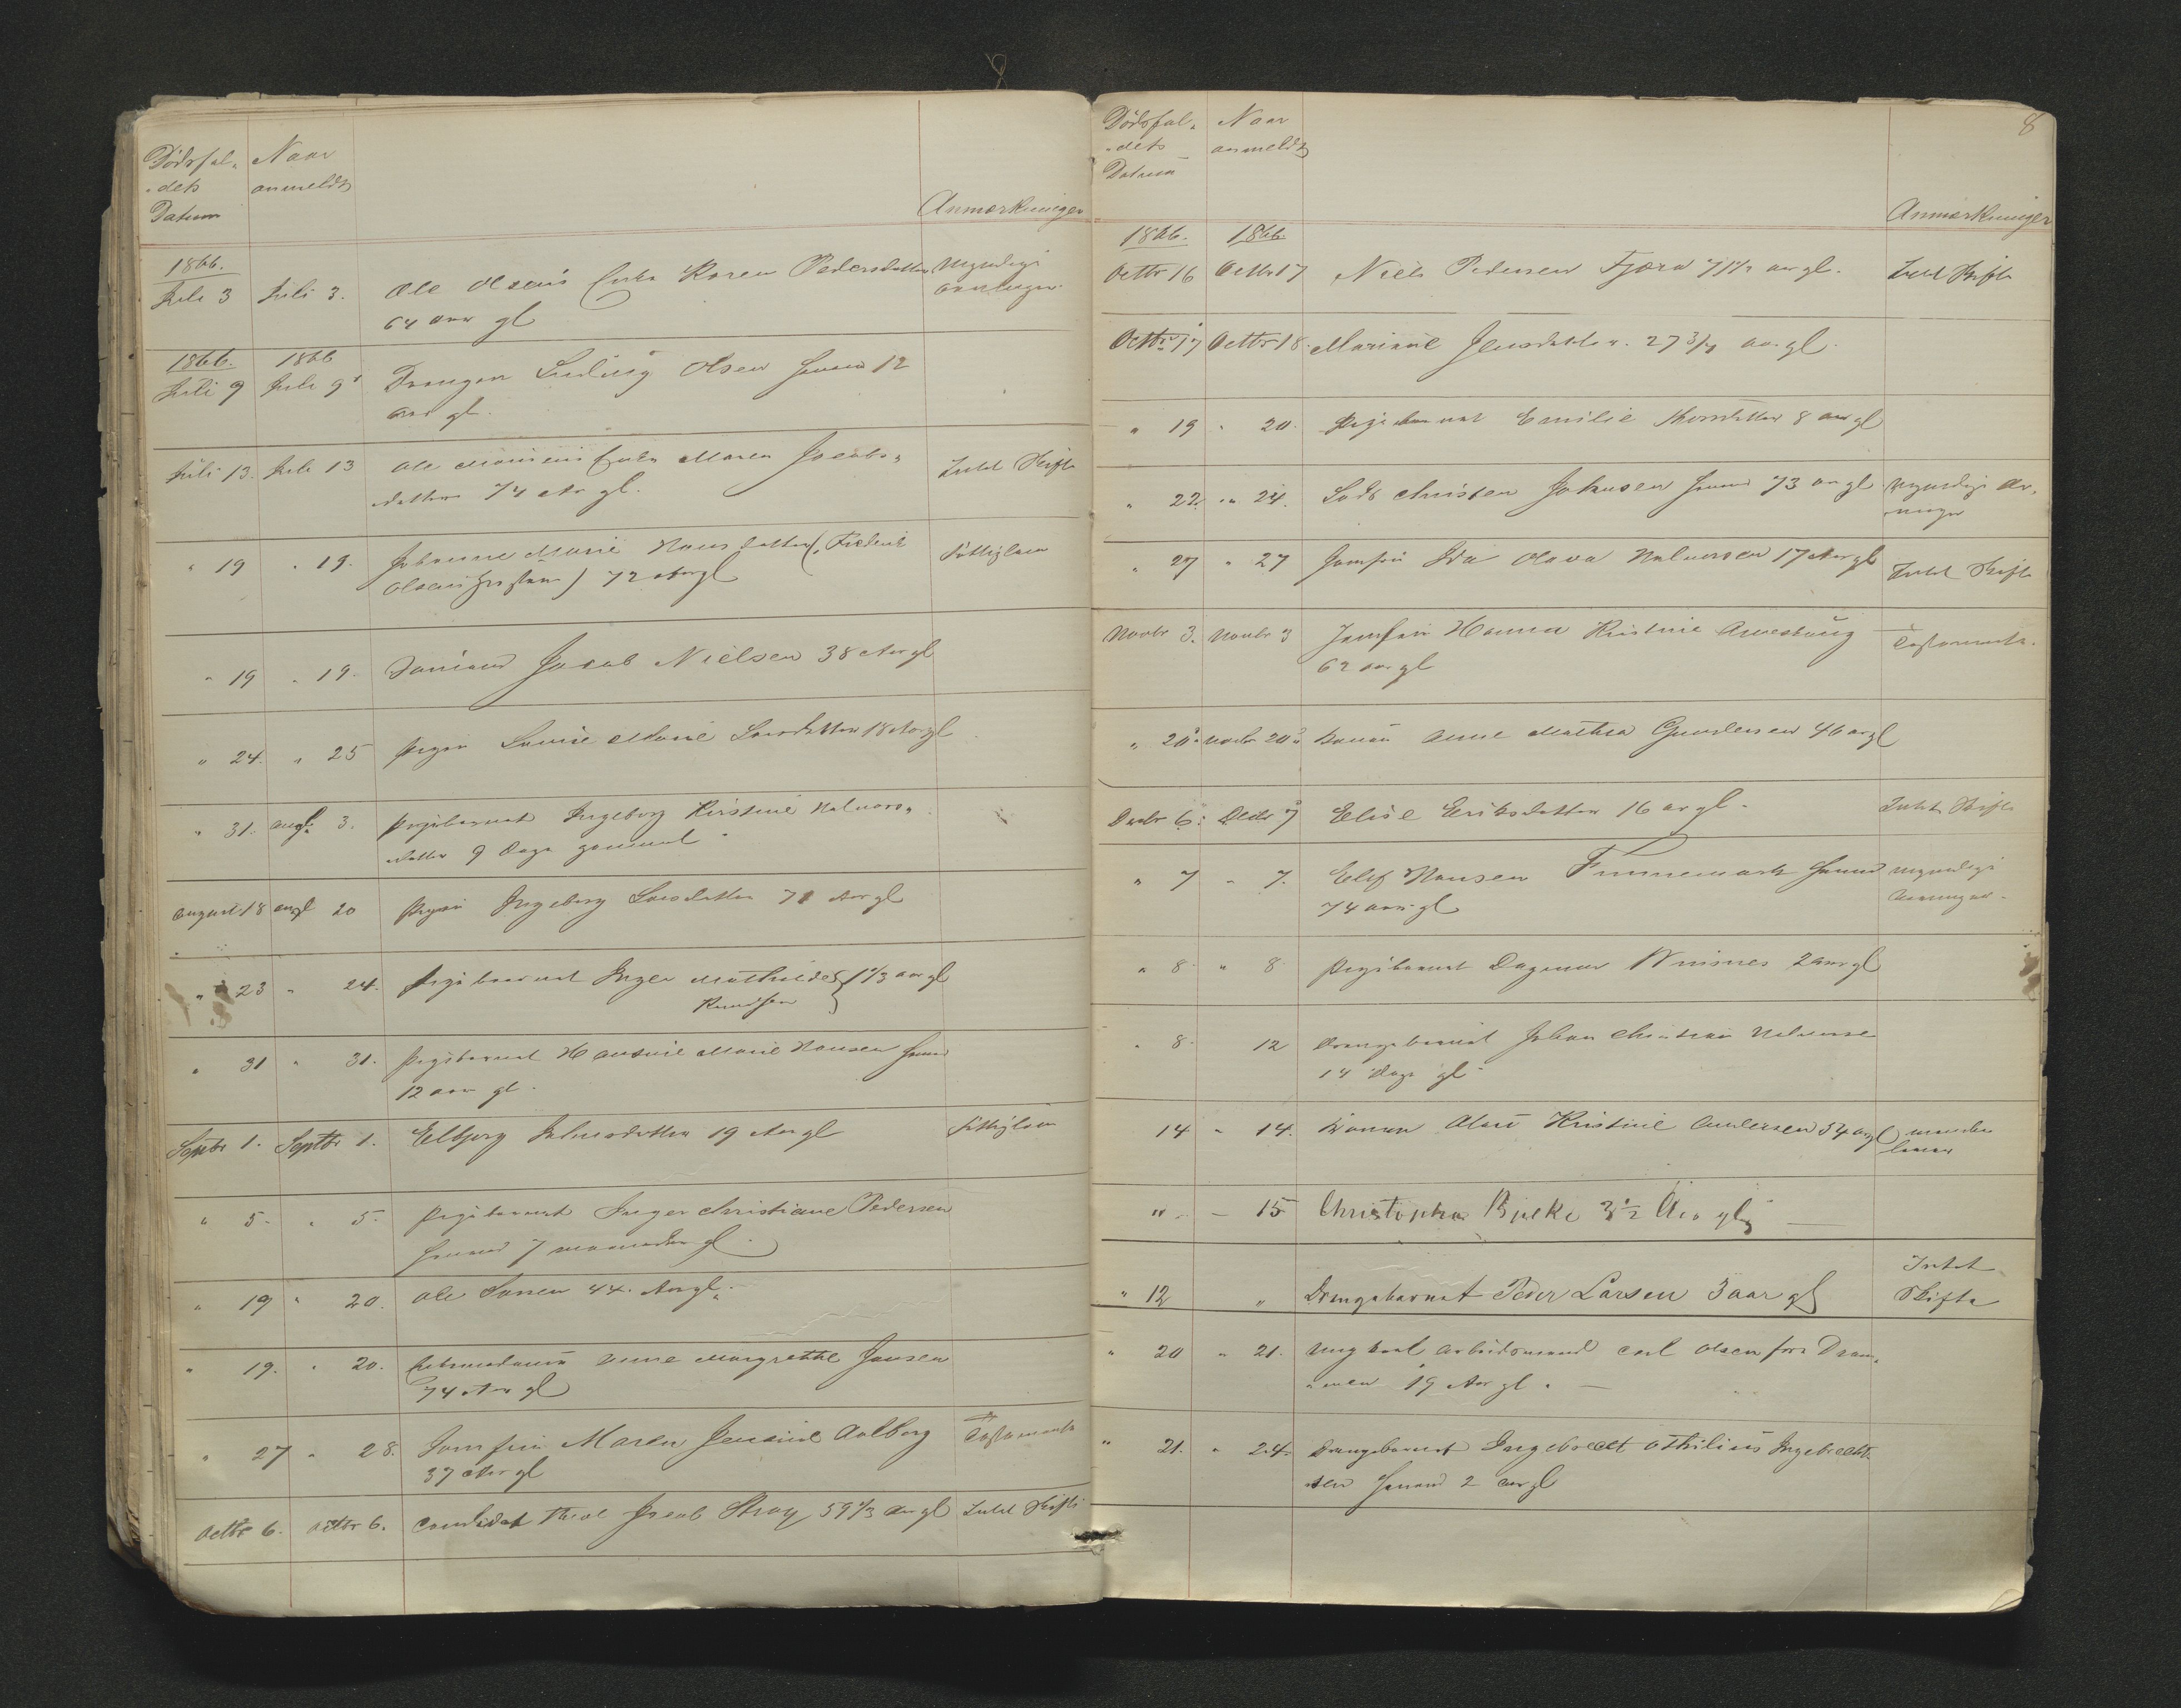 Dödsfal-
-dets
Datum
Naar
anmeldt
Anmærkninger
1866.
Juli 3 Juli 3. Ole Olsens Enke Karen Pedersdatter Myndige
64 aar gl Arvinger.
1866. 1866
Juli 9 Juli 9 Drengen Ludvig Olsen 12
aar gl.
Juli 13. Juli 13 Ole Enke Maren Jacobs-
datter 74 Aar gl. Intet Skifte
" 19 " 19. Johanne Marie Hansdatter (Frederik
Olsens ) 72 Aar gl Fattiglem
" 19 " 19. Jacob Nielsen 38 Aar gl
" 24. " 25 Pigen Lovise Marie Larsdatter 18 Aar gl
" 31. Augt. 3. Pigebarnet Ingeborg Kirstine Halvors-
datter 9 Dage gammel
August 18 Augt 20 Pigen Ingeborg Larsdatter 71 Aar gl
" 23 " 24. Pigebarnet Inger Mathilde 1 1/3 aar gl
Knudsen
" 31 " 31. Pigebarnet Hansine Marie Hansen
12 aar gl.
Septbr 1. Septbr 1. Elbjørg 19 Aar gl Fattiglem
" 5. " 5. Pigebarnet Inger Christiane Pedersen
7 maaneder gl.
" 19 " 20. Ole 44. Aar gl.
" 19. " 20. Enkemadame Anne Margrethe Jansen
74 Aar gl
" 27 " 28. Jomfru Maren Aalborg Testamente
37 Aar gl
Octbr 6. Octbr 6. Candidat Theol Jacob 59 1/3 Aar gl Intet Skifte
8
Dödsfal-
-dets
Datum
Naar
anmeldt
Anmærkninger
1866. 1866.
Octbr 16 Octbr 17 Niels Pedersen 71 1/2 aar gl. Intet Skifte
Octbr 17 Octbr 18. Mariane Jensdatter. 27 3/4 aar gl.
" 19 " 20. Pigebarnet Emilie 8 aar gl
" 22. " 24. Lods Christen Johnsen 73 aar gl Myndige Ar-
vinger
" 27 " 27 Jomfru Ida Olava Halvorsen 17 Aar gl Intet Skifte
Novbr 3. Novbr 3 Jomfru Hanna Kirstine
62 aar gl Testamente.
" 20 Novbr 20 Konen Anne Mathea Gundersen 46 aar gl
Decbr 6. Decbr 7 Elise Eriksdatter 16 aar gl. Intet Skifte
" 7 " 7. Elef Hansen Finnemark Myndige
74 aar gl Arvinger.
" 8. " 8. Pigebarnet Dagmar 2 aar gl
" 8. 12 Drengebarnet Johan Christian Halvorsen
14 Dage gl.
14 " 14. Konen Kristine Andersen 54 aar gl manden
lever
" - 15 Christopher Bjelke 3 1/2 Aar gl
" 12 " Drengebarnet Peder Larsen 3 aar gl Intet
Skifte
" 20 " 21. Ungkarl Arbeidsmand Carl Olsen fra Dram-
men 19 Aar gl.
" 21. " 24. Drengebarnet Ingebrecht Othilius Ingebrecht-
sen 2 aar gl